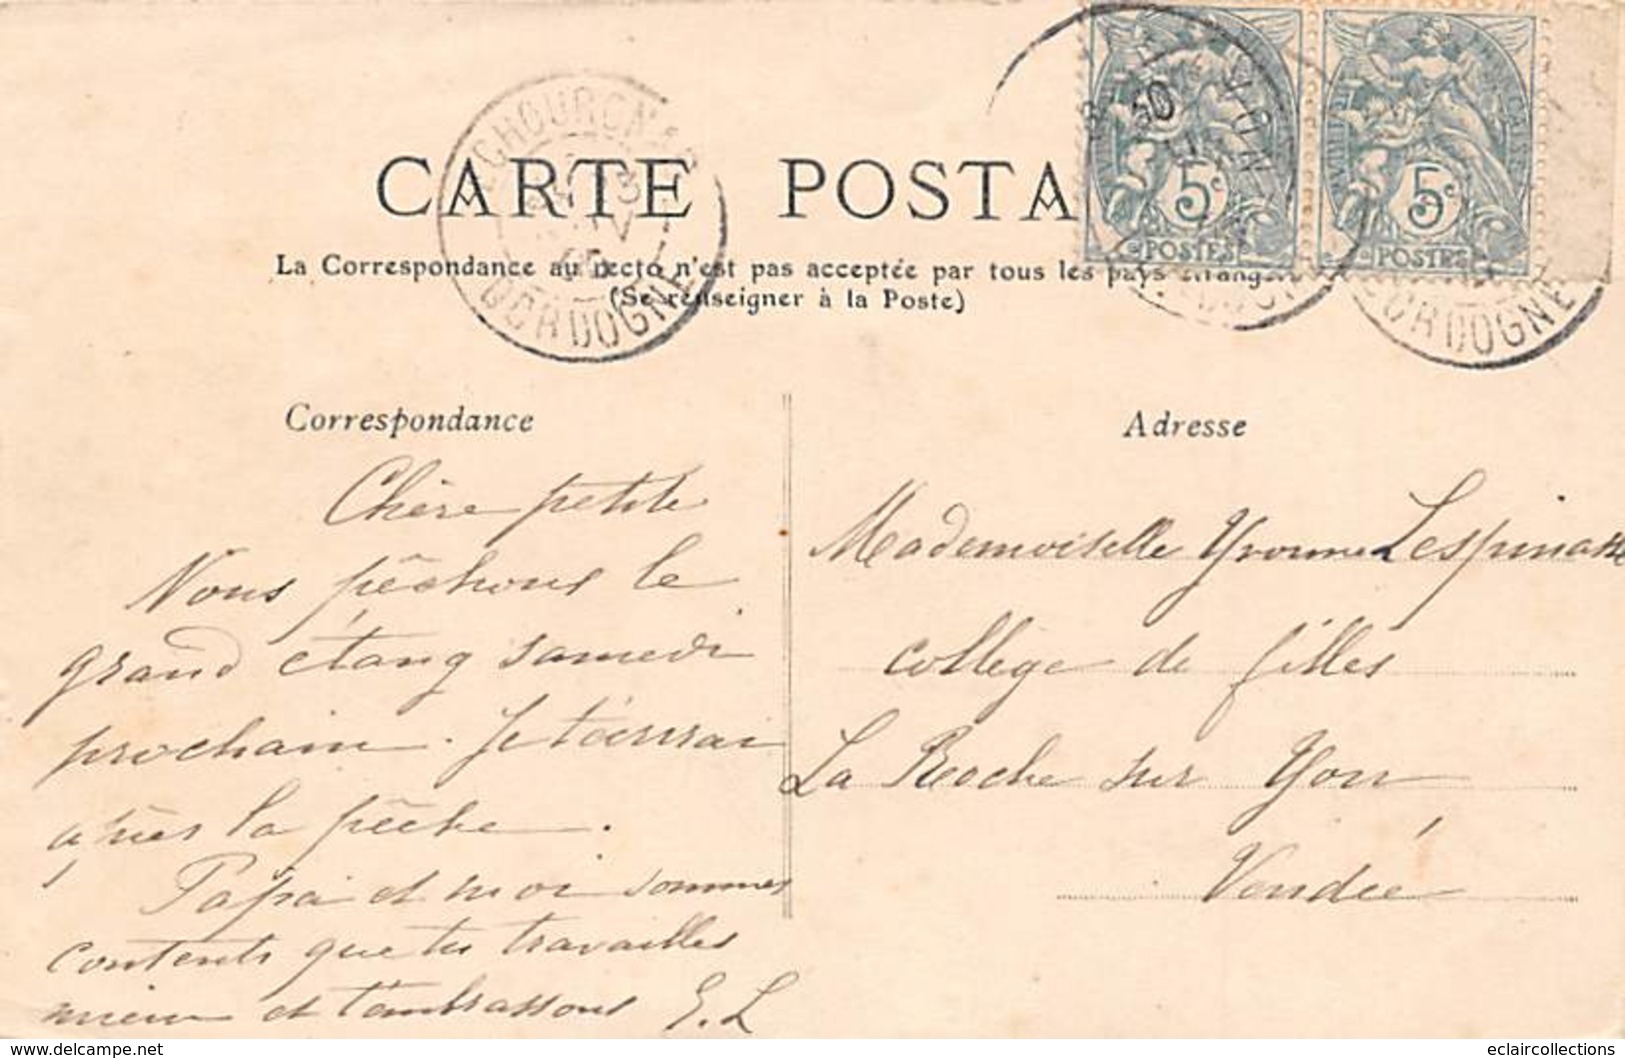 CARTE POSTA
La Correspondance au recto n'est pas acceptée par tous les pays étrangers
(Se renseigner à la Poste)
ECHOURGNAC
DORDOGNE
5c
POSTES
5c
POSTES
DORDOGNE
Correspondance
Chère petite
Nous pêchons le
grand étang samedi
prochain. Je t'écrirai
après la pêche.
Papa et moi sommes
contents que tu travailles
mieux et t'embrassons E. L
Adresse
Mademoiselle Yvonne Lespinasse
collège de filles
La Roche sur Yon
Vendée
www.delcampe.net
eclaircollections